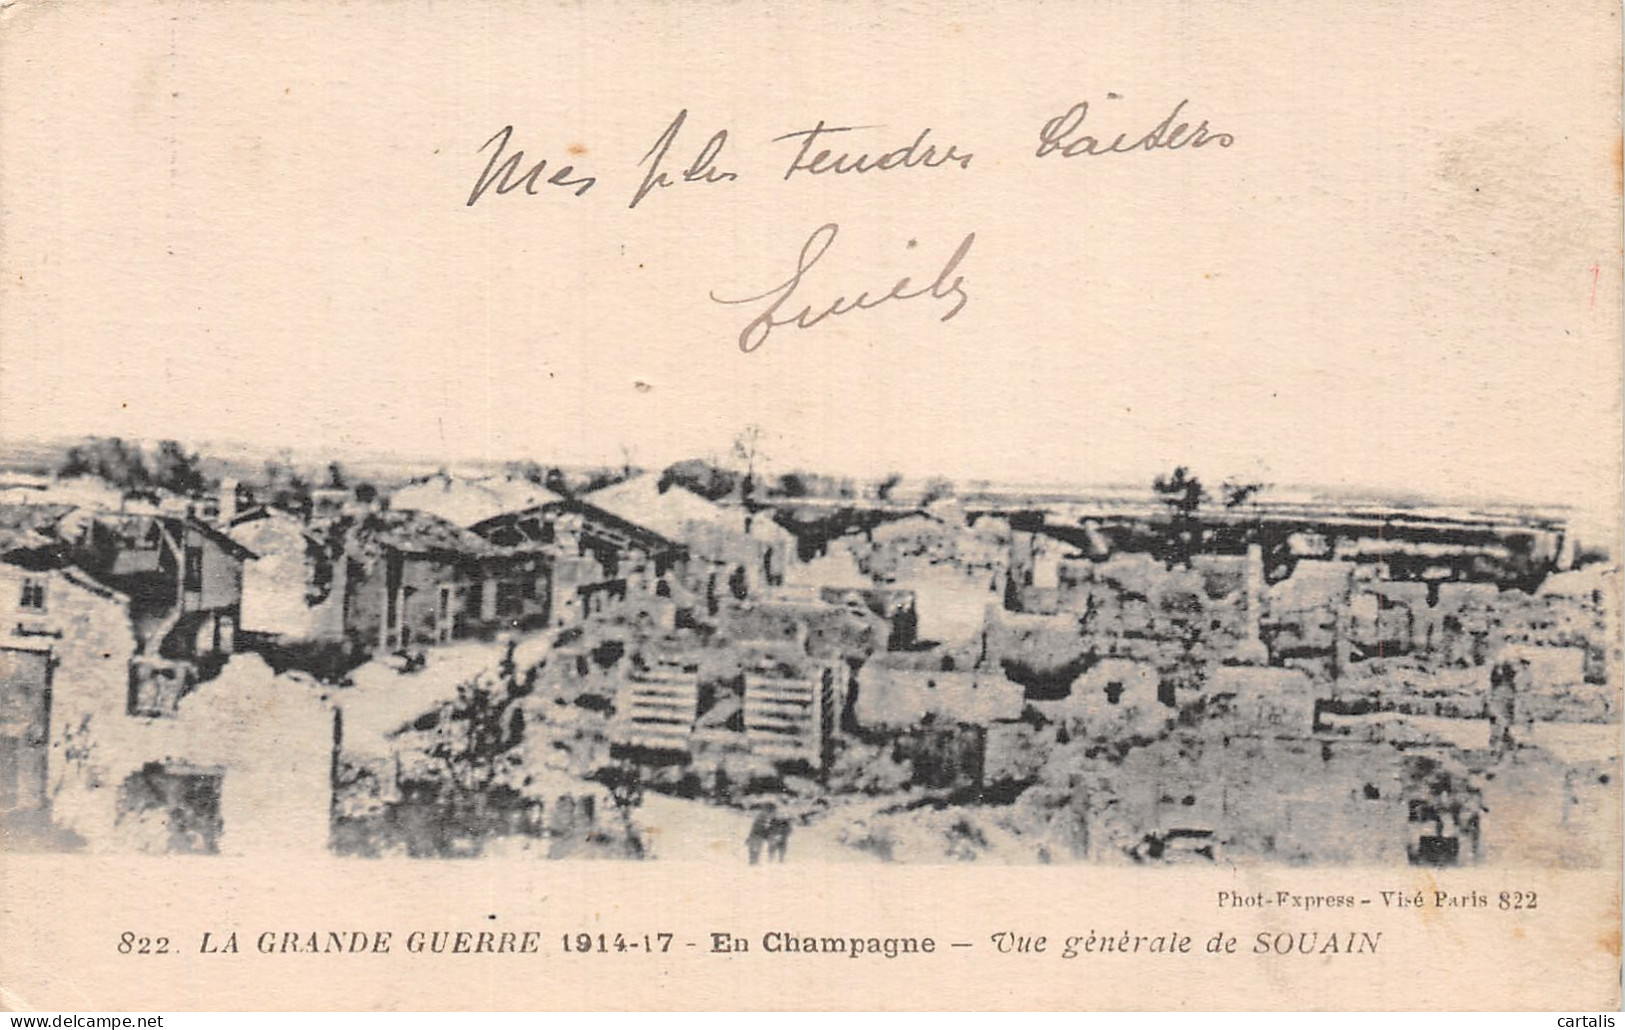 Mes plus tendres baisers
Emile
Phot-Express - Visé Paris 822
822. LA GRANDE GUERRE 1914-17 - En Champagne — Vue générale de SOUAIN
www.delcampe.net
cartalis